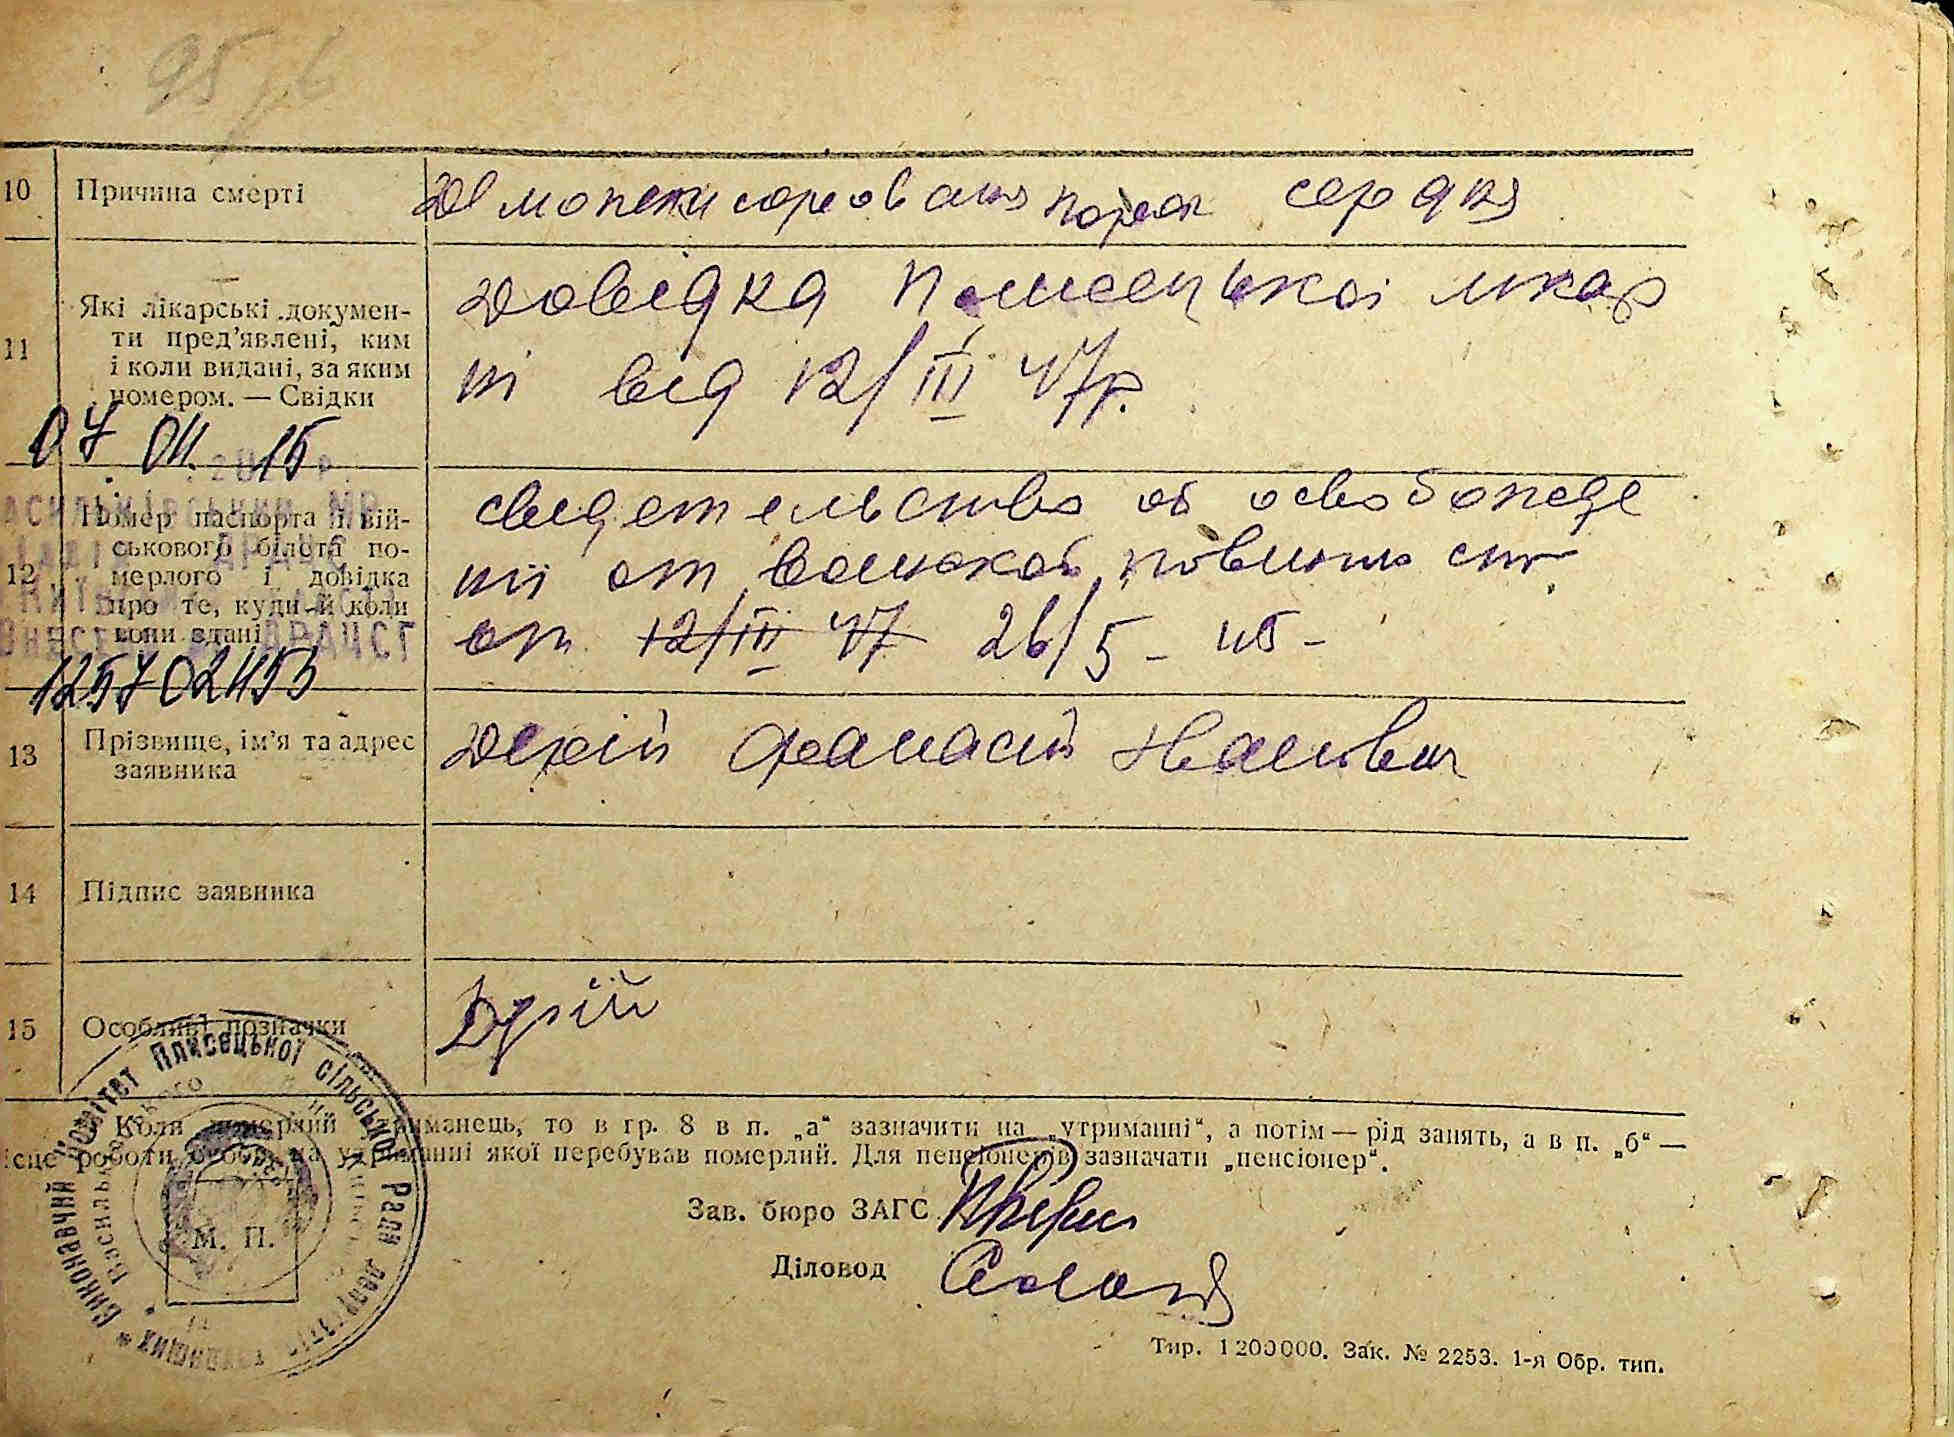 95
10 Причина смерті порок сердця
11 Які лікарські докумен-
ти пред'явлені, ким
і коли видані, за яким
номером. — Свідки
Довідка Плисецької лікар
ні від 12/III 47р.
07 04. 15
12 Номер паспорта й вій-
ськового білета по-
мерлого і довідка
про те, куди й коли
вони здані
свидетельство об освобожде
нії от воинской повинности
от 12/III 47 26/5 - 45 -
125702453
13 Прізвище, ім'я та адрес
заявника
Дерій Афанасій Иванович
14 Підпис заявника
15 Особливі позначки
Дерій
Коли померлий утриманець, то в гр. 8 в п. „а“ зазначити на „утриманні“, а потім — рід занять, а в п. „б“ —
місце роботи особи, на утриманні якої перебував померлий. Для пенсіонерів зазначати „пенсіонер“.
Виконавчий Комітет Плисецької сільської Ради депутатів трудящих
М. П.
Зав. бюро ЗАГС
Діловод
Тир. 1200000. Зак. № 2253. 1-я Обр. тип.